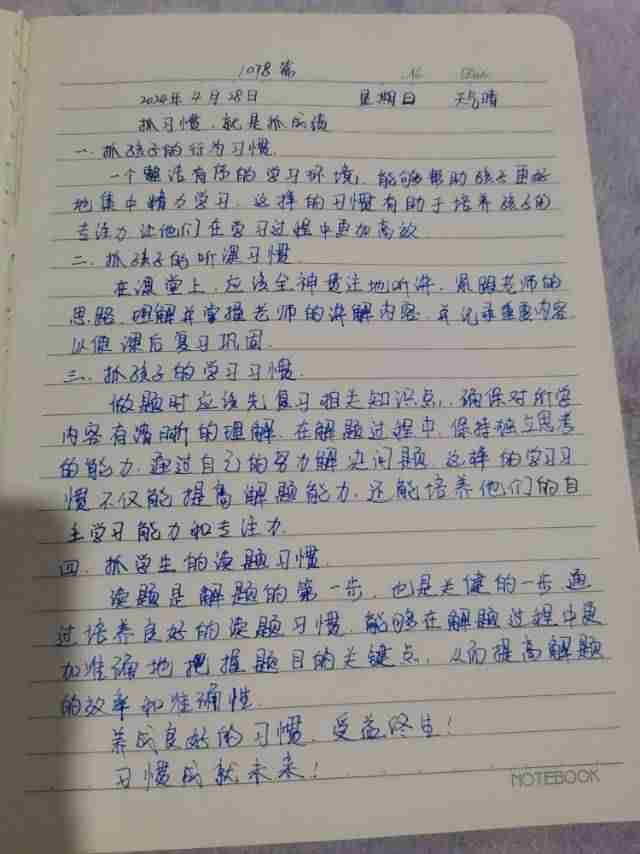 1078篇
No Date
2024年4月28日 星期日 天气晴
抓习惯，就是抓成绩
一.抓孩子的行为习惯.
一个整洁有序的学习环境，能够帮助孩子更好
地集中精力学习.这样的习惯有助于培养孩子的
专注力让他们在学习过程中更加高效
二.抓孩子的听课习惯.
在课堂上，应该全神贯注地听讲.紧跟老师的
思路.理解并掌握老师的讲解内容.并记录重要内容
以便课后复习巩固.
三.抓孩子的学习习惯.
做题时应该先复习相关知识点，确保对所学
内容有清晰的理解.在解题过程中.保持独立思考
的能力.通过自己的努力解决问题.这样的学习习
惯不仅能提高解题能力.还能培养他们的自
主学习能力和专注力.
四.抓学生的读题习惯.
读题是解题的第一步.也是关健的一步通
过培养良好的读题习惯.能够在解题过程中更
加准确地把握题目的关键点，从而提高解题
的效率和准确性.
养成良好的习惯.受益终生！
习惯成就未来！
NOTEBOOK